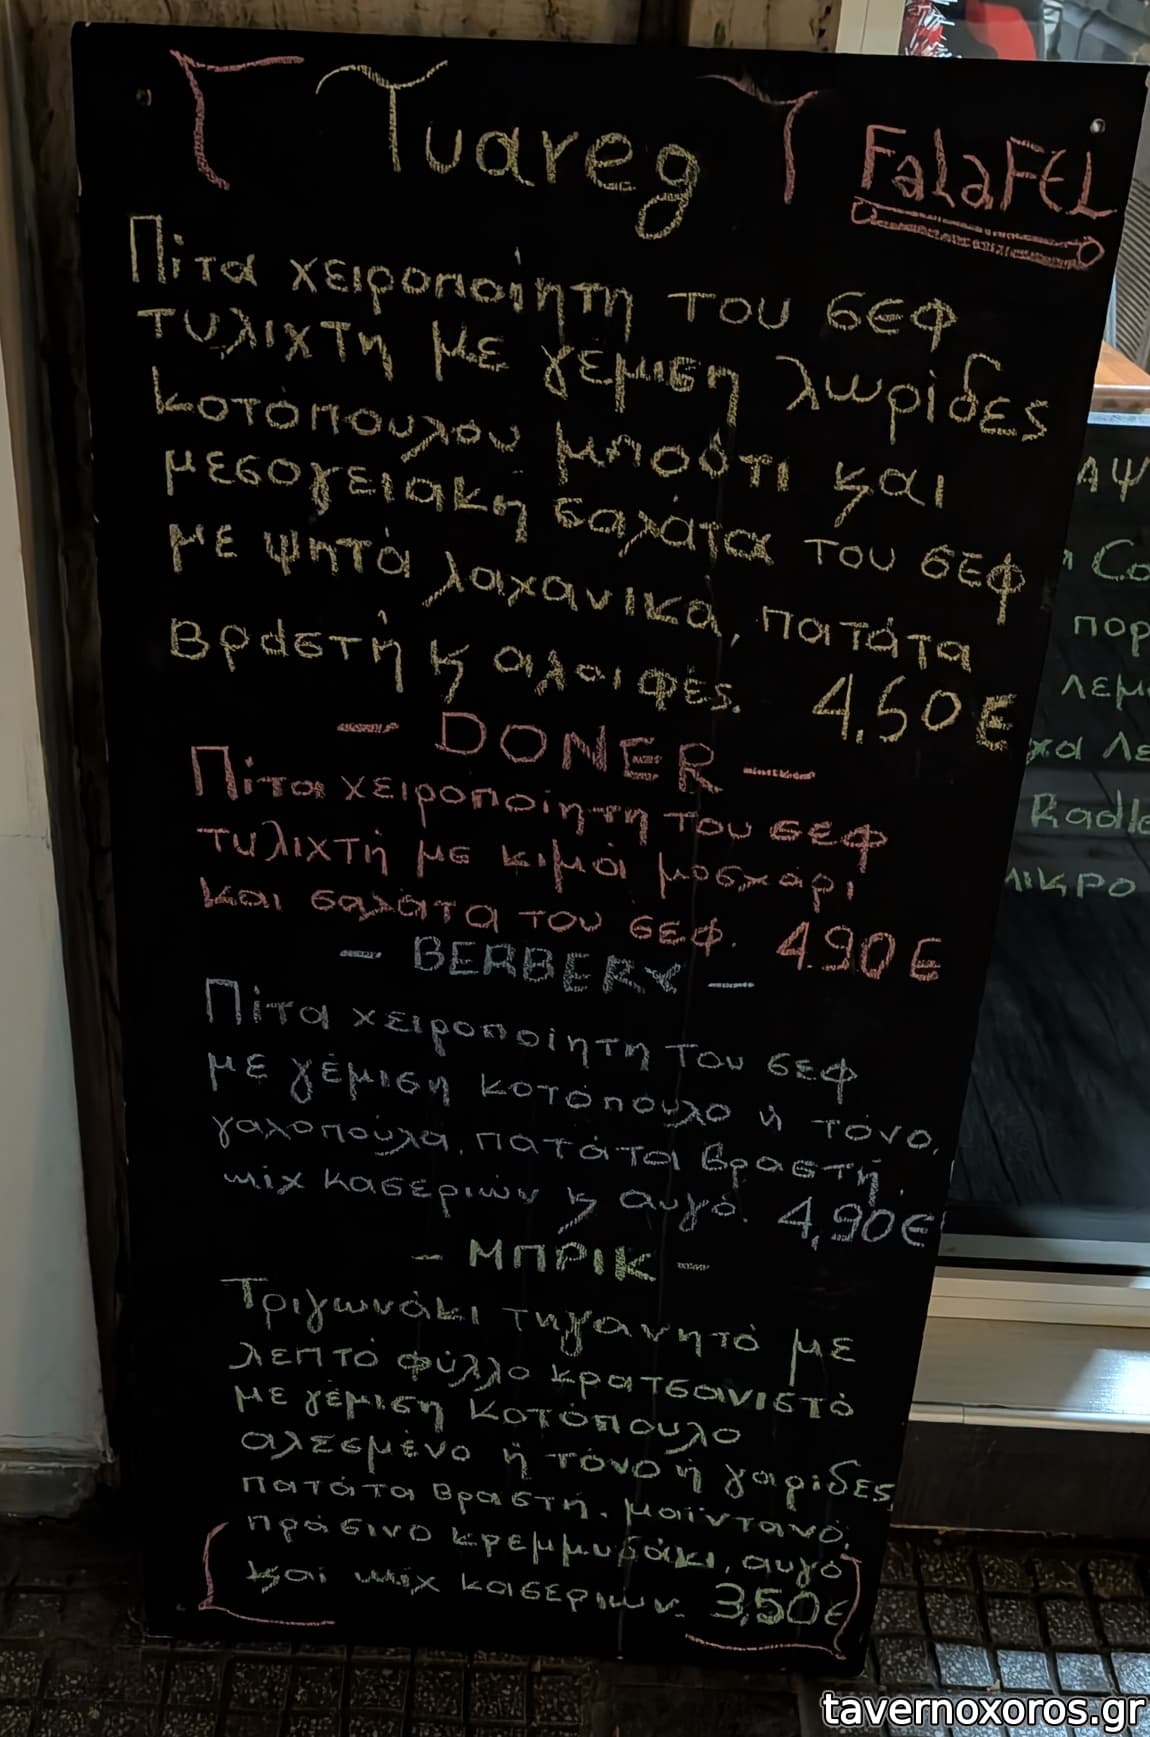 Tuareg
FalaFEL
Πίτα χειροποίητη του σεφ
τυλιχτη με γέμιση λωρίδες
κοτόπουλου μπούτι και
μεσογειακή σαλάτα του σεφ
με ψητά λαχανικα, πατάτα
Βραστή κ αλοιφές. 4.50€
- DONER -
Πίτα χειροποίητη του σεφ
τυλιχτή με κιμά μοσχάρι
και σαλάτα του σεφ. 4.90€
- BERBERY -
Πίτα χειροποίητη του σεφ
με γέμιση κοτόπουλο ή τόνο,
γαλοπούλα, πατάτα βραστή,
mix κασεριών κ αυγό. 4,90€
- ΜΠΡΙΚ -
Τριγωνάκι τηγανητό με
λεπτό φύλλο κρατσανιστό
με γέμιση κοτόπουλο
αλεσμένο ή τόνο ή γαρίδες,
πατάτα βραστή, μαϊντανό,
πράσινο κρεμμυδάκι, αυγό
και mix κασεριων. 3,50€
ΑΨ
Co
πορ
λεμ
χα λε
Radle
μικρο
tavernoxoros.gr